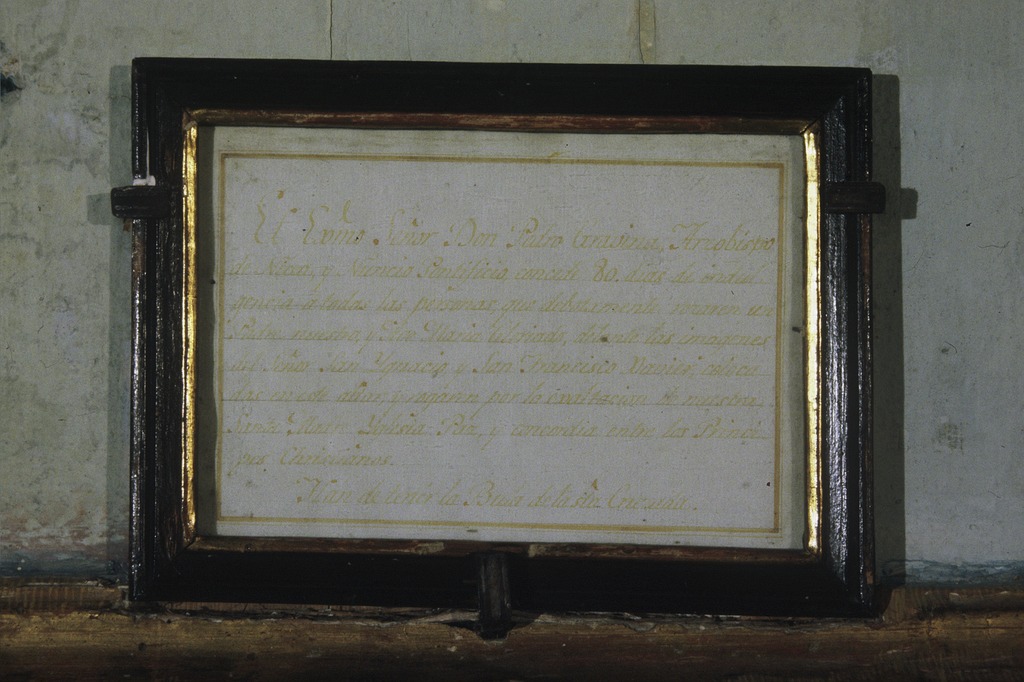 El Exmo Señor Don Pedro Gravina, Arzobispo
de Nicea, y Nuncio Pontificio, concede 80. dias de indul
gencia á todas las personas, que debotamente rezaren un
Padre nuestro, y Ave Maria delante las imagenes
del Señor San Ygnacio, y San Francisco Xavier, coloca
das en este altar, y rogaren por la exaltacion de nuestra
Santa Madre Yglesia Paz, y concordia entre los Princi-
pes Christianos.
Han de tener la Bula de la sta. Cruzada.